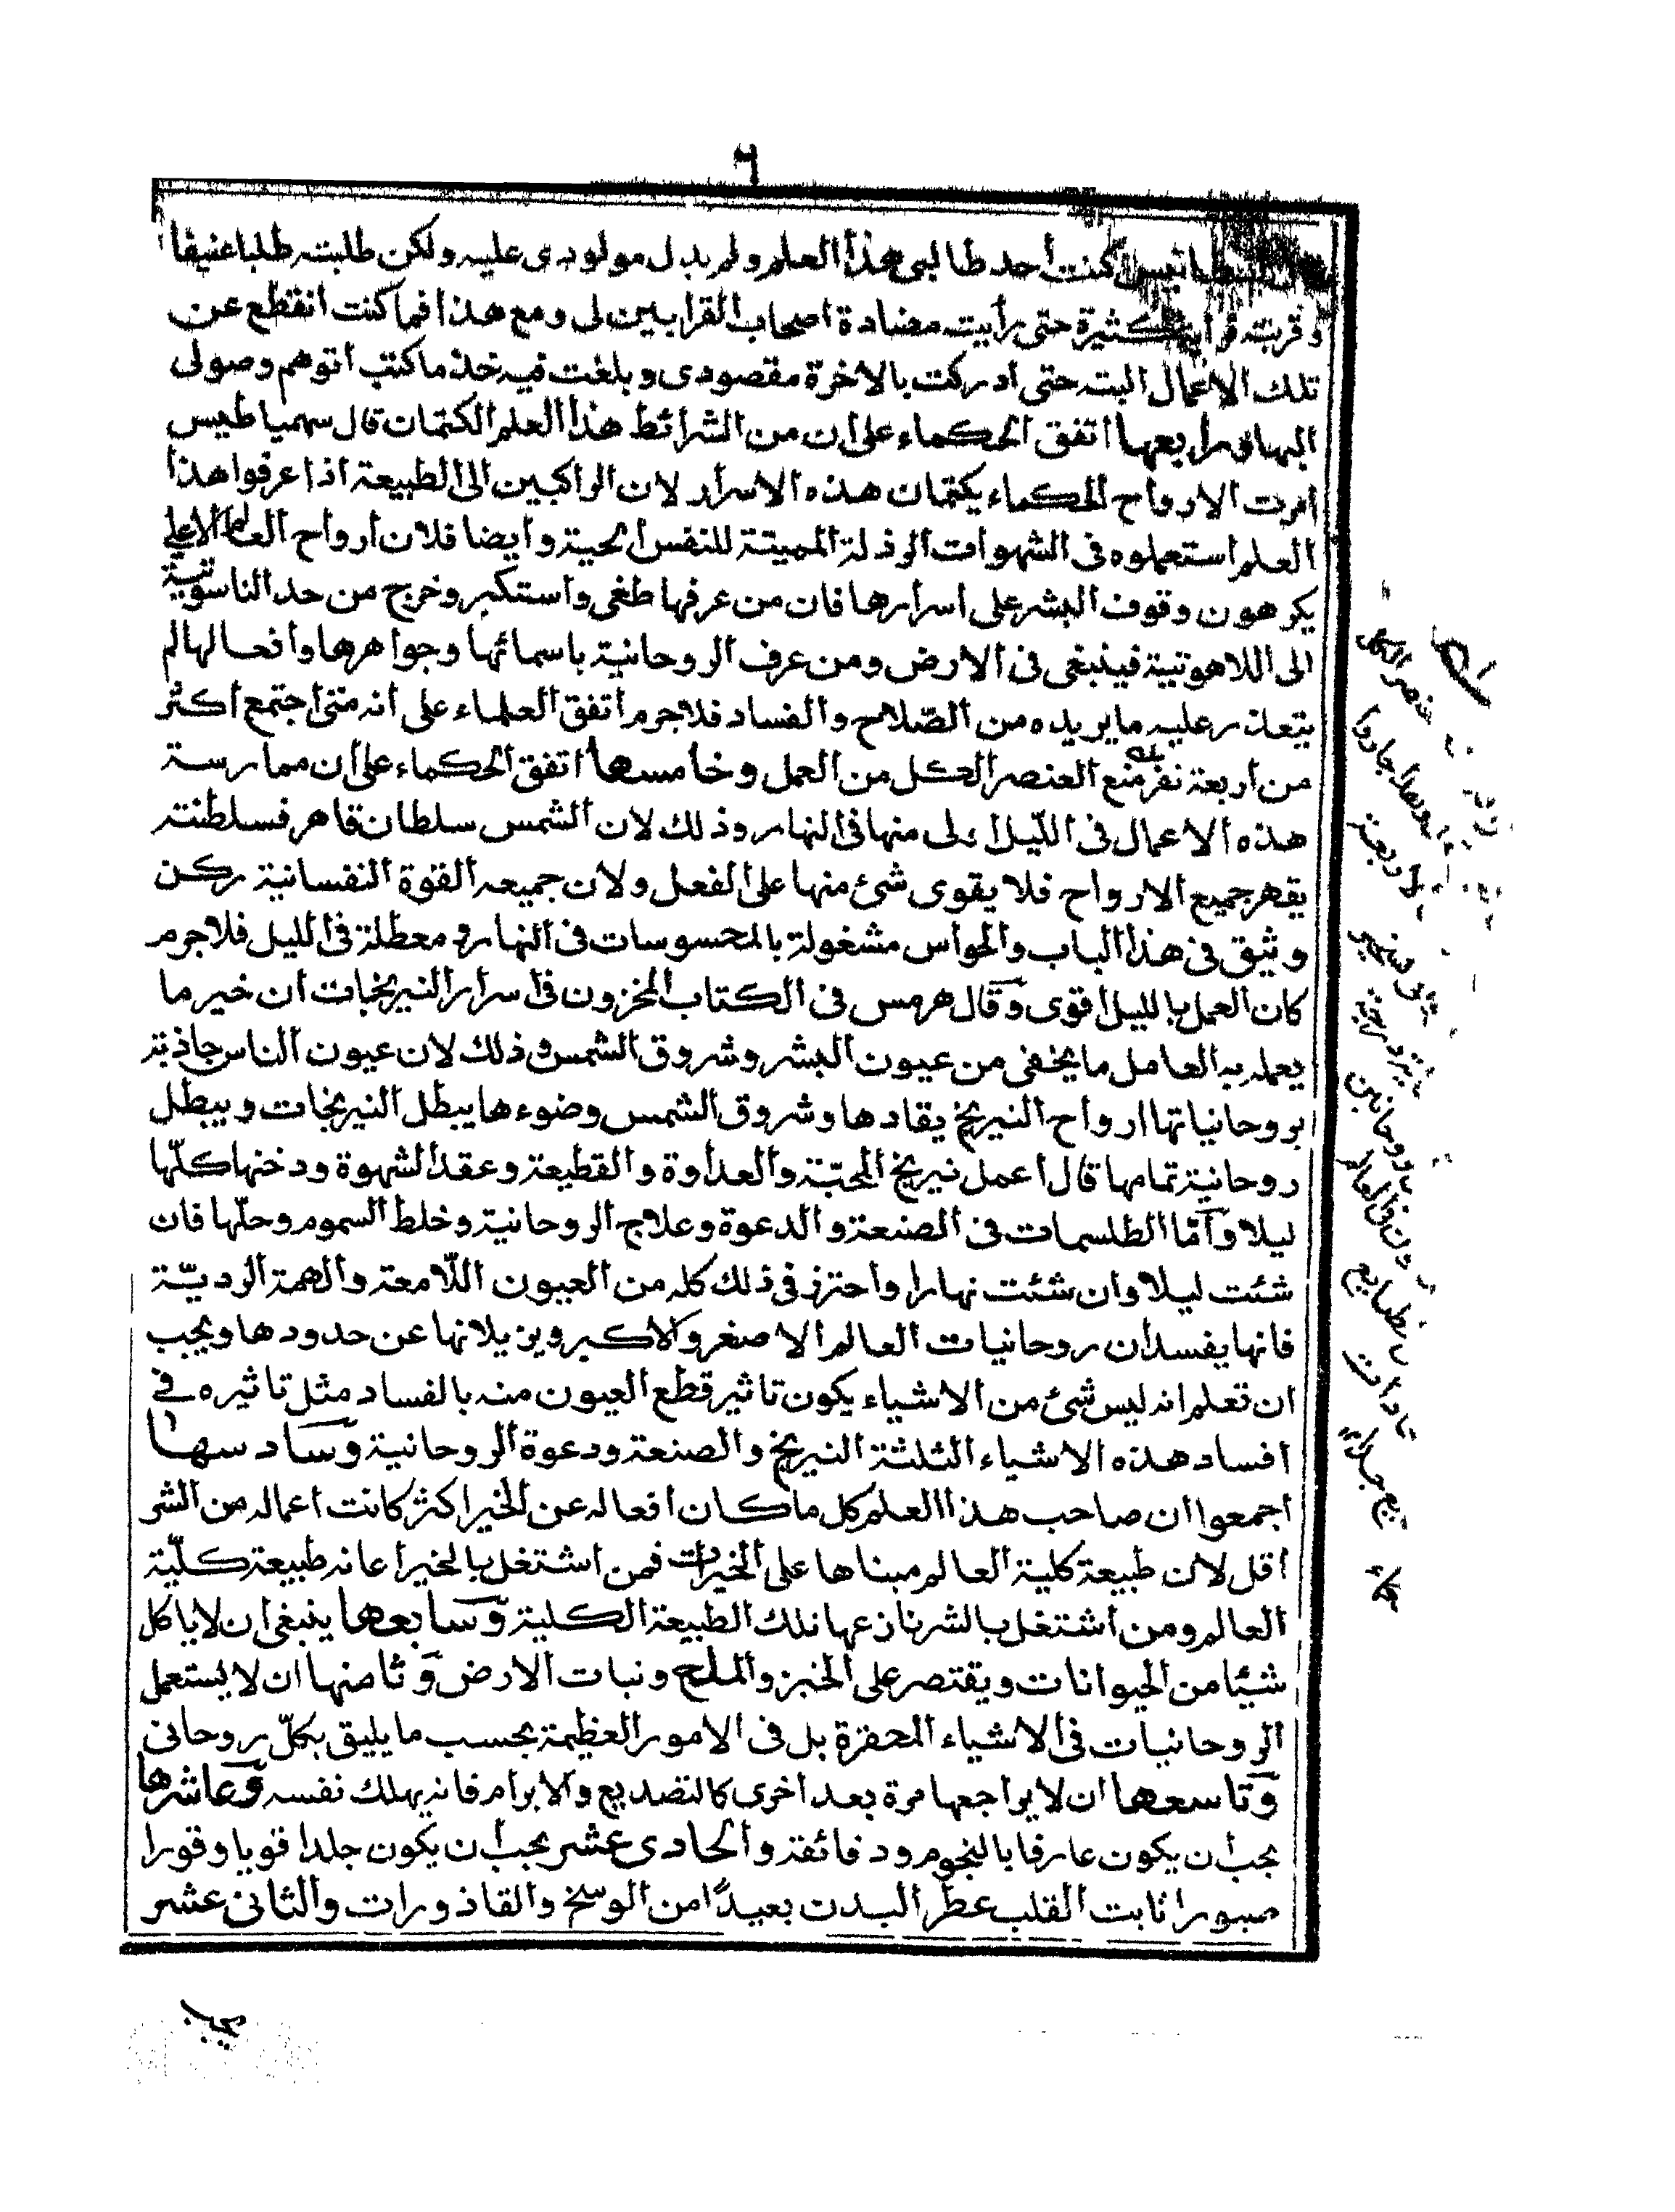 ٦
كنت أحد طالبى هذا العلم ولم يدل مولودى عليه ولكن طلبته طلبا عنيفا
وقربته كثيرة حتى رأيت مضادة اصحاب القرابين لى ومع هذا فما كنت انقطع عن
تلك الاعمال البته حتى ادركت بالاخرة مقصودى وبلغت فيه خذ ما كنت اتوهم وصولى
اليها ورابعها اتفق الحكماء على ان من الشرائط هذا العلم الكتمان قال سهمياطيس
امرت الارواح الحكماء بكتمان هذه الاسرار لان الراكبين الى الطبيعة اذا عرفوا هذا
العلم استعملوه فى الشهوات الرذلة المميتة للنفس الحية وأيضا فلان أرواح العالم الاعلى
يكرهون وقوف البشر على اسرارها فان من عرفها طغى واستكبر وخرج من حد الناسوتية
الى اللاهوتية فينبغى فى الارض ومن عرف الروحانية باسمائها وجواهرها وأفعالها لم
يتعذر عليه ما يريده من الصّلاح والفساد فلا جرم اتفق العلماء على أنه متى اجتمع اكثر
من أربعة نفر منع العنصر الحكل من العمل وخامسها اتفق الحكماء على ان ممارسة
هذه الاعمال فى اللّيل اولى منها فى النهار وذلك لان الشمس سلطان قاهر فسلطنته
يقهر جميع الارواح فلا يقوى شئ منها على الفعل ولان جميعه القوة النفسانية ركن
وثيق فى هذا الباب والحواس مشغولة بالمحسوسات فى النهار و معطلة فى الليل فلا جرم
كان العمل بالليل أقوى وقال هرمس فى الكتاب المخزون فى أسرار النيرنجات ان خير ما
يعمله به العامل ما يخفى من عيون البشر وشروق الشمس وذلك لان عيون الناس جاذبة
بروحانياتها ارواح النيرنج يقادها وشروق الشمس وضوءها يبطل النيرنجات ويبطل
روحانية تمامها قال أعمل نيرنج المحبّة والعداوة والقطيعة وعقد الشهوة ودخنها كلّها
ليلا وأمّا الطلسمات فى الصنعة والدعوة وعلاج الروحانية وخلط السموم وحلّها فان
شئت ليلا وان شئت نهارا واحترز فى ذلك كله من العيون اللّامعة والهمة الرديّة
فانها يفسدان روحانيات العالم الاصغر والاكبر ويزيلانها عن حدودها ويجب
ان تعلم انه ليس شئ من الاشياء يكون تاثير قطع العيون منه بالفساد مثل تاثيره فى
افساد هذه الاشياء الثلثة النيرنج والصنعة ودعوة الروحانية وسادسها
اجمعوا ان صاحب هذا العلم كل ما كان افعاله عن الخير اكثر كانت اعماله من الشر
اقل لان طبيعة كلية العالم مبناها على الخيرات فمن اشتغل بالخير اعانه طبيعة كلّية
العالم ومن اشتغل بالشر نازعها تلك الطبيعة الكلية وسابعها ينبغى ان لا ياكل
شيئا من الحيوانات ويقتصر على الخبز والملح ونبات الارض وثامنها ان لا يستعمل
الروحانيات فى الاشياء المحقرة بل فى الامور العظيمة بحسب ما يليق بكلّ روحانى
وتاسعها ان لا يراجعها مرة بعد اخرى كالتصديع والابرام فانه يهلك نفسه وعاشرها
يجب أن يكون عارفا بالنجوم ودقائقه والحادى عشر يجب أن يكون جلدا قويا وقورا
صبورا ثابت القلب عطر البدن بعيدًا من الوسخ والقاذورات والثانى عشر
يجب